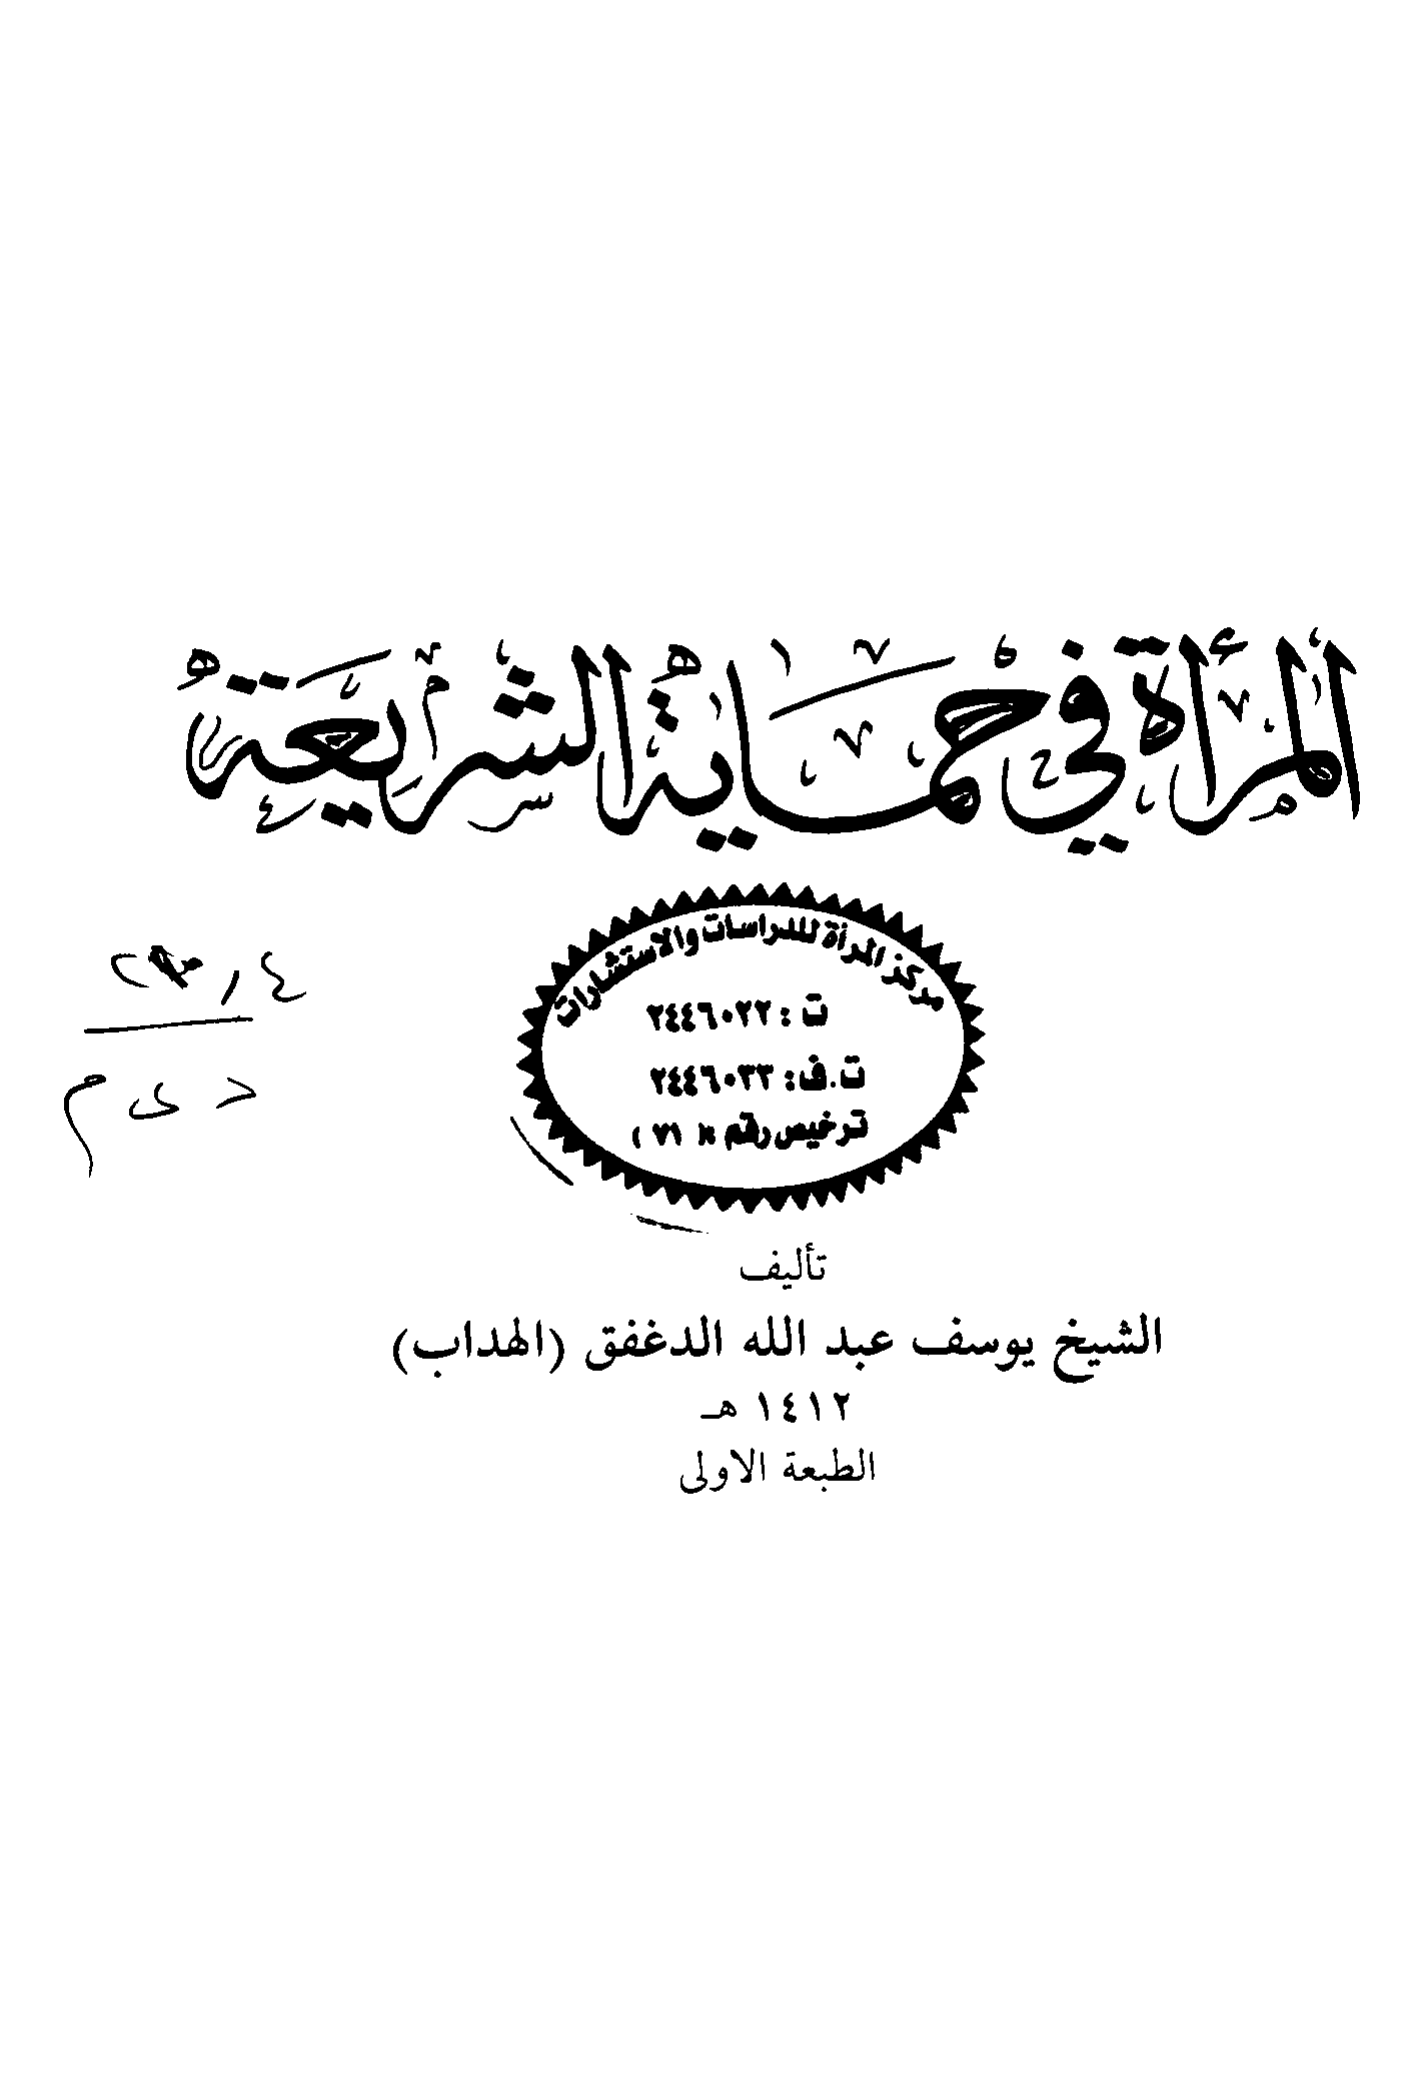 المرأة في حماية الشريعة
مركز المرأة للدراسات والاستشارات
ت : ٢٤٤٦٠٢٢
ت.ف: ٢٤٤٦٠٣٣
ترخيص رقم ( ٧١ )
د ى م
تأليف
الشيخ يوسف عبد الله الدغفق (الهداب)
١٤١٢ هـ
الطبعة الاولى